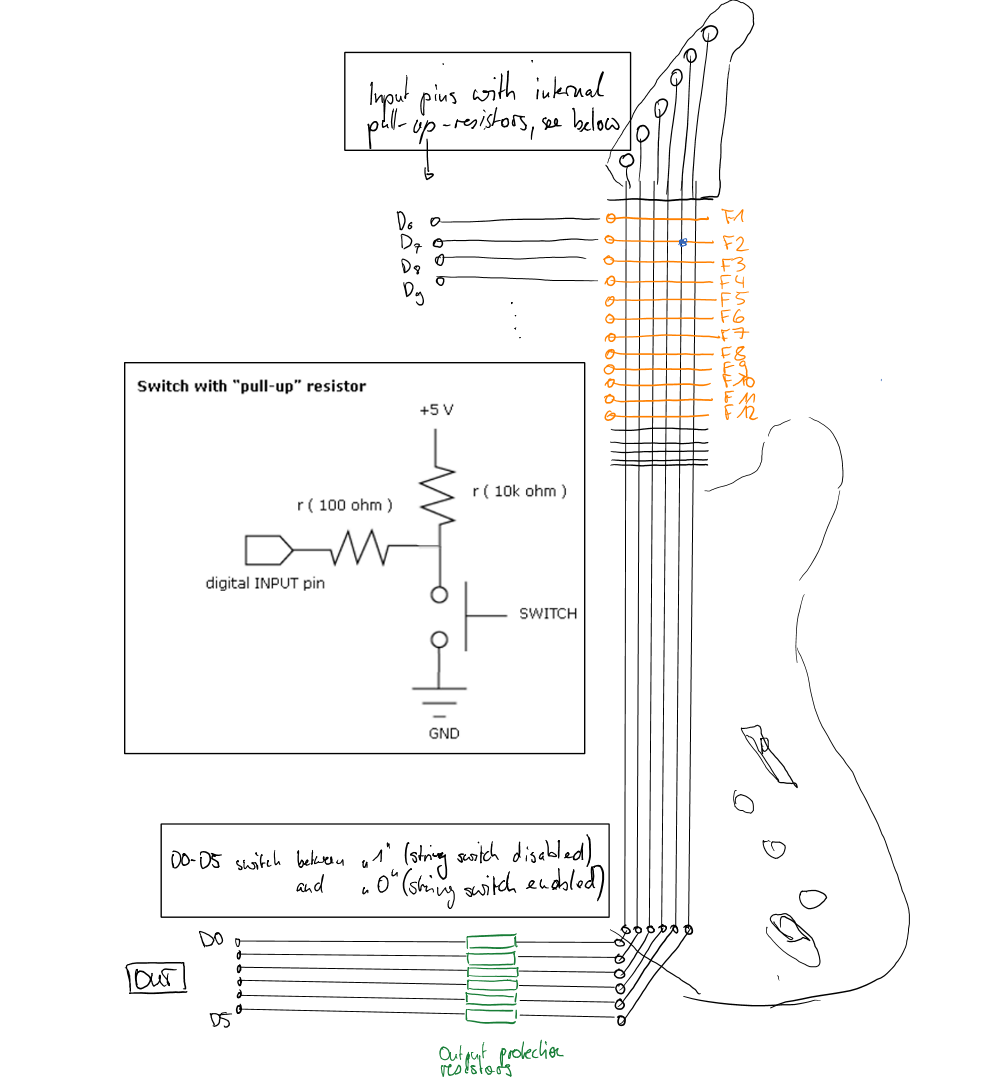 Input pins with internal
pull-up-resistors, see below
D6
D7
D8
D9
F1
F2
F3
F4
F5
F6
F7
F8
F9
F10
F11
F12
Switch with "pull-up" resistor
+5 V
r ( 10k ohm )
r ( 100 ohm )
digital INPUT pin
SWITCH
GND
D0-D5 switch between "1" (string switch disabled)
and "0" (string switch enabled)
D0
OUT
D5
Output protection
resistors